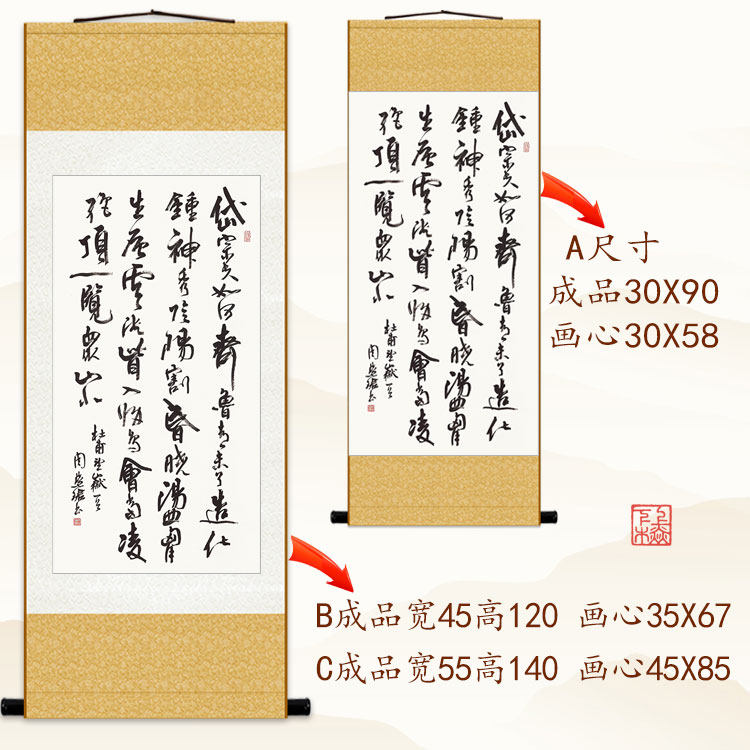 岱宗夫如何齊魯青未了造化
鍾神秀陰陽割昏曉盪胸
生層雲決眥入歸鳥會當凌
絕頂一覽衆山小
杜甫望嶽一首
岱宗夫如何齊魯青未了造化
鍾神秀陰陽割昏曉盪胸
生層雲決眥入歸鳥會當凌
絕頂一覽衆山小
杜甫望嶽一首
A尺寸
成品30X90
画心30X58
B成品宽45高120 画心35X67
C成品宽55高140 画心45X85